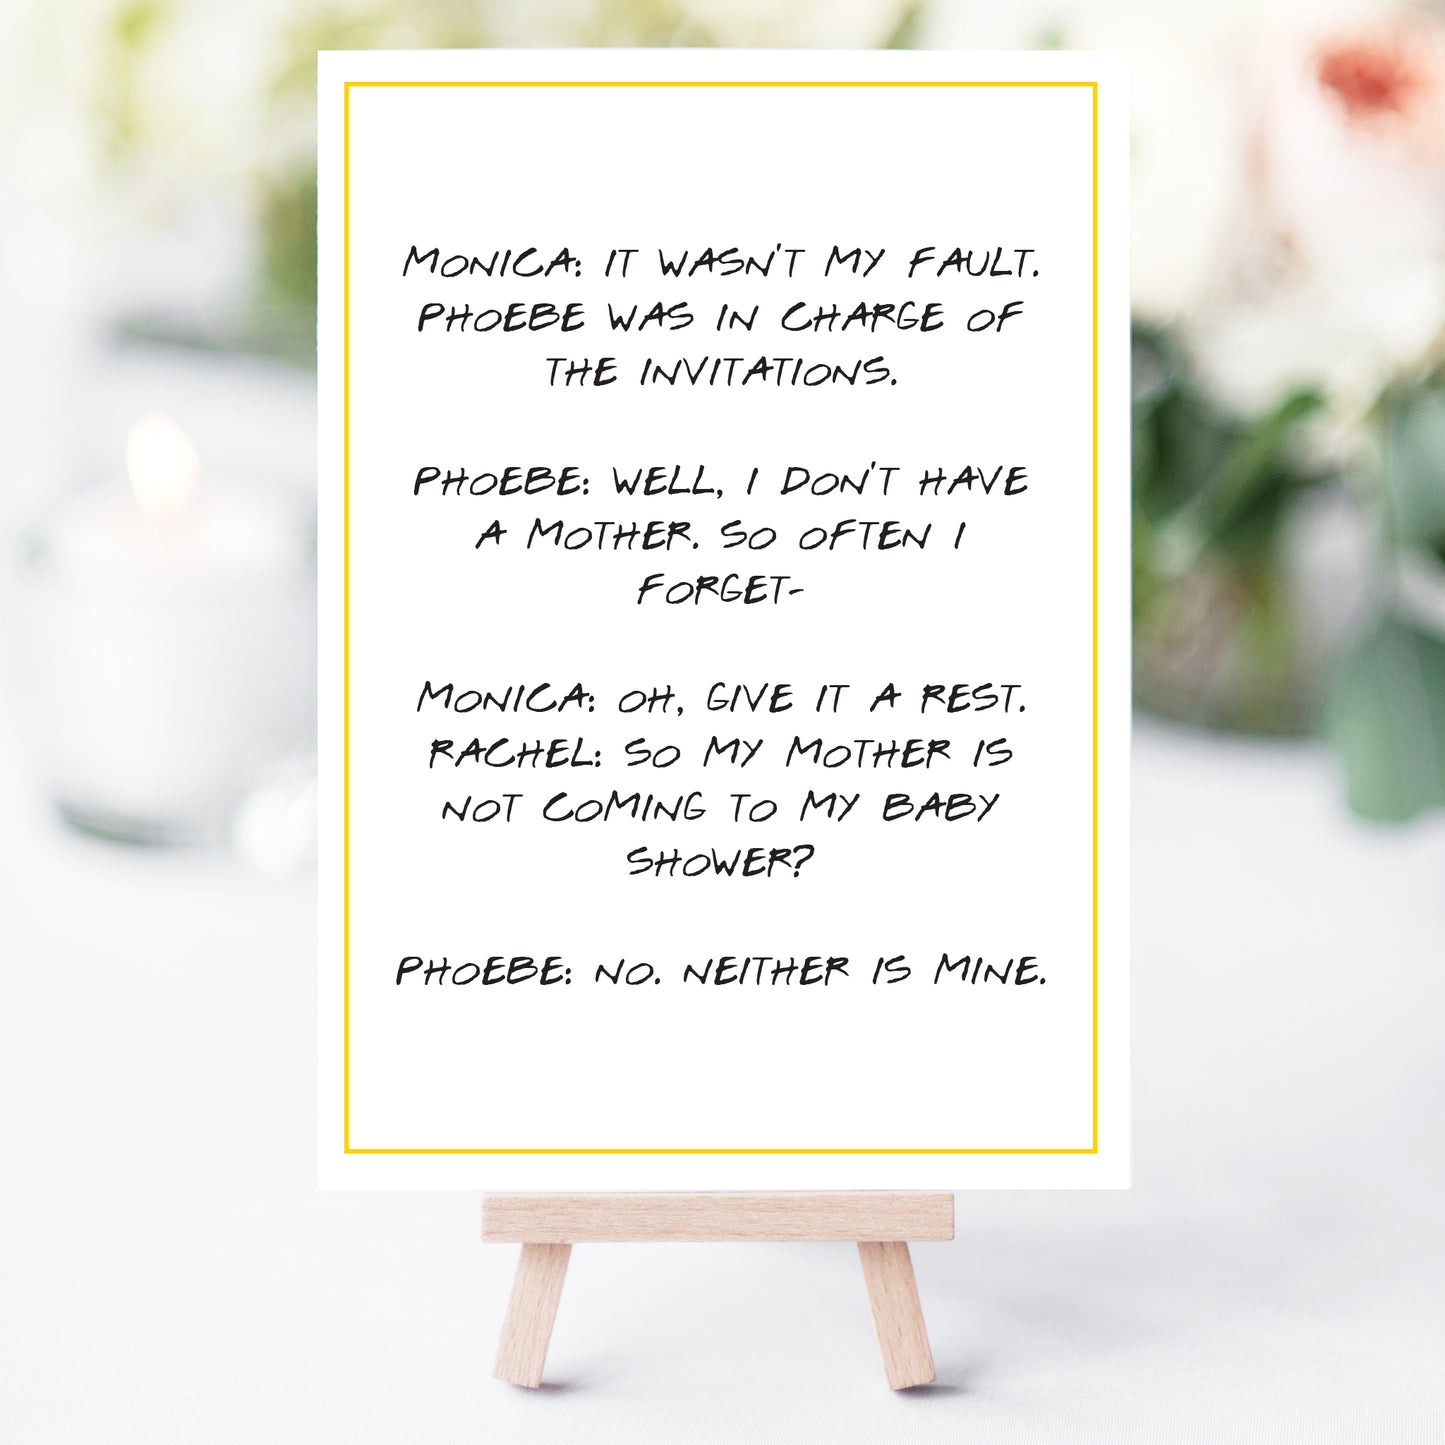 MONICA: IT WASN'T MY FAULT.
PHOEBE WAS IN CHARGE OF
THE INVITATIONS.
PHOEBE: WELL, I DON'T HAVE
A MOTHER. SO OFTEN I
FORGET-
MONICA: OH, GIVE IT A REST.
RACHEL: SO MY MOTHER IS
NOT COMING TO MY BABY
SHOWER?
PHOEBE: NO. NEITHER IS MINE.